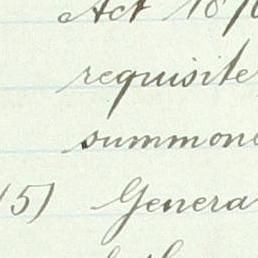 Act 18
requisite
summone
5) Genera